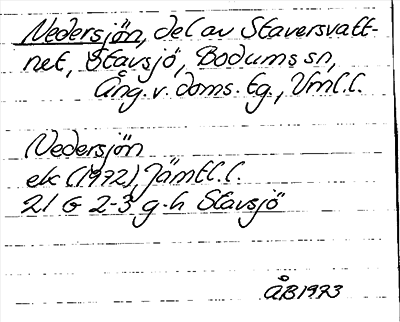 Nedersjön, del av Staversvatt-
net, Stavsjö, Bodums sn,
Ång. v. doms. tg., Vnl. l.
Nedersjön
ek (1972), Jämtl. l.
21 G 2-3 g-h Stavsjö
ÅB 1973